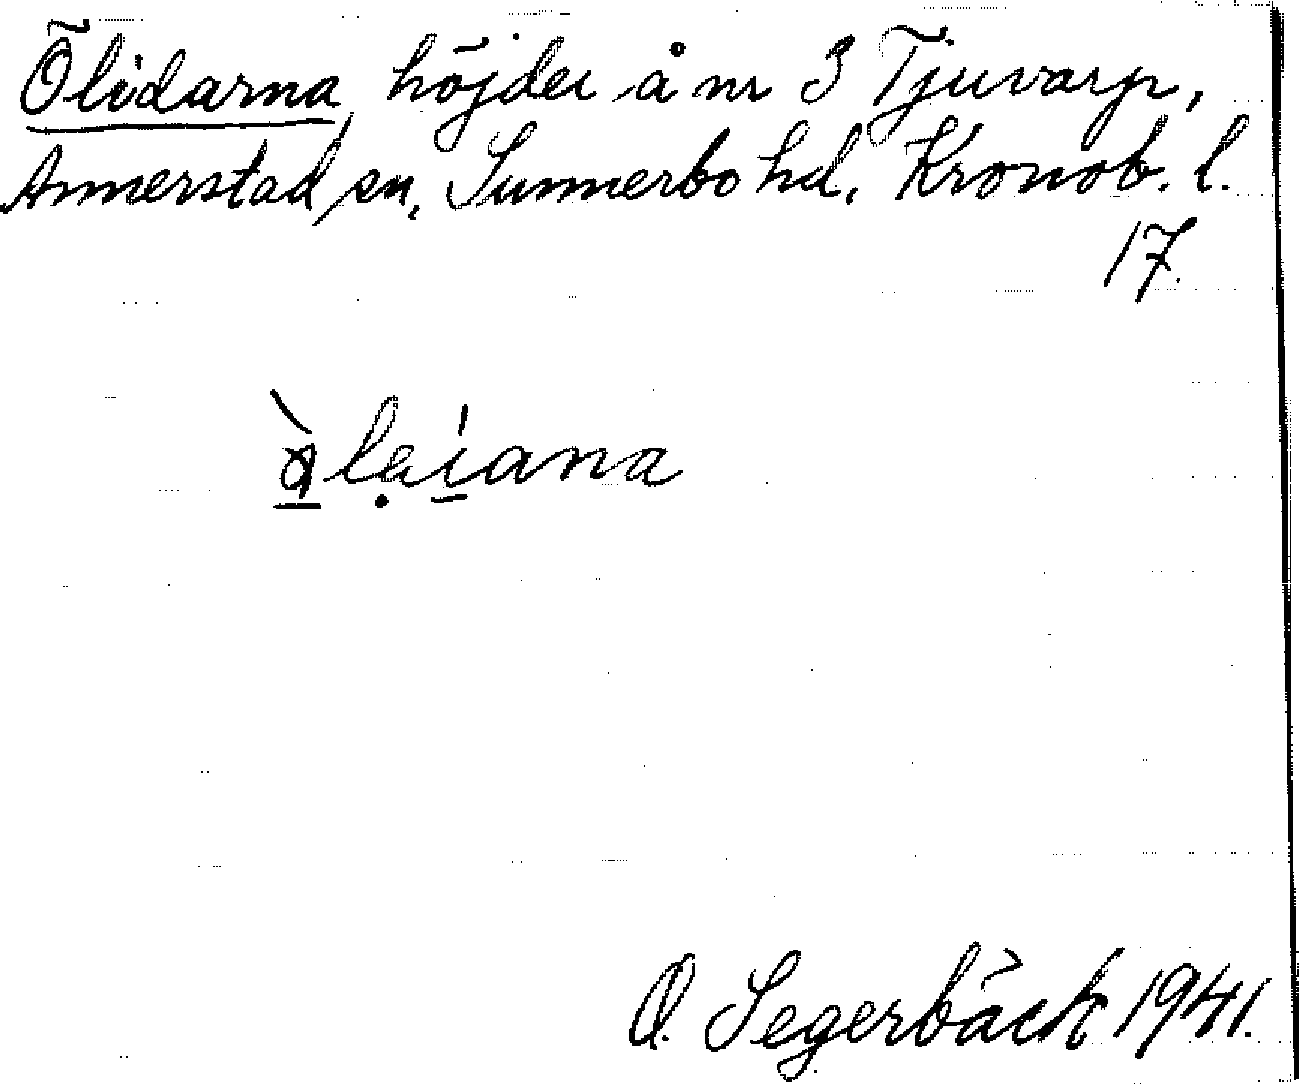 Ölidarna, höjder å nr 3 Tjuvarp,
Annerstad sn, Sunnerbo hd, Kronob. l.
17.
O. Segerbäck 1941.